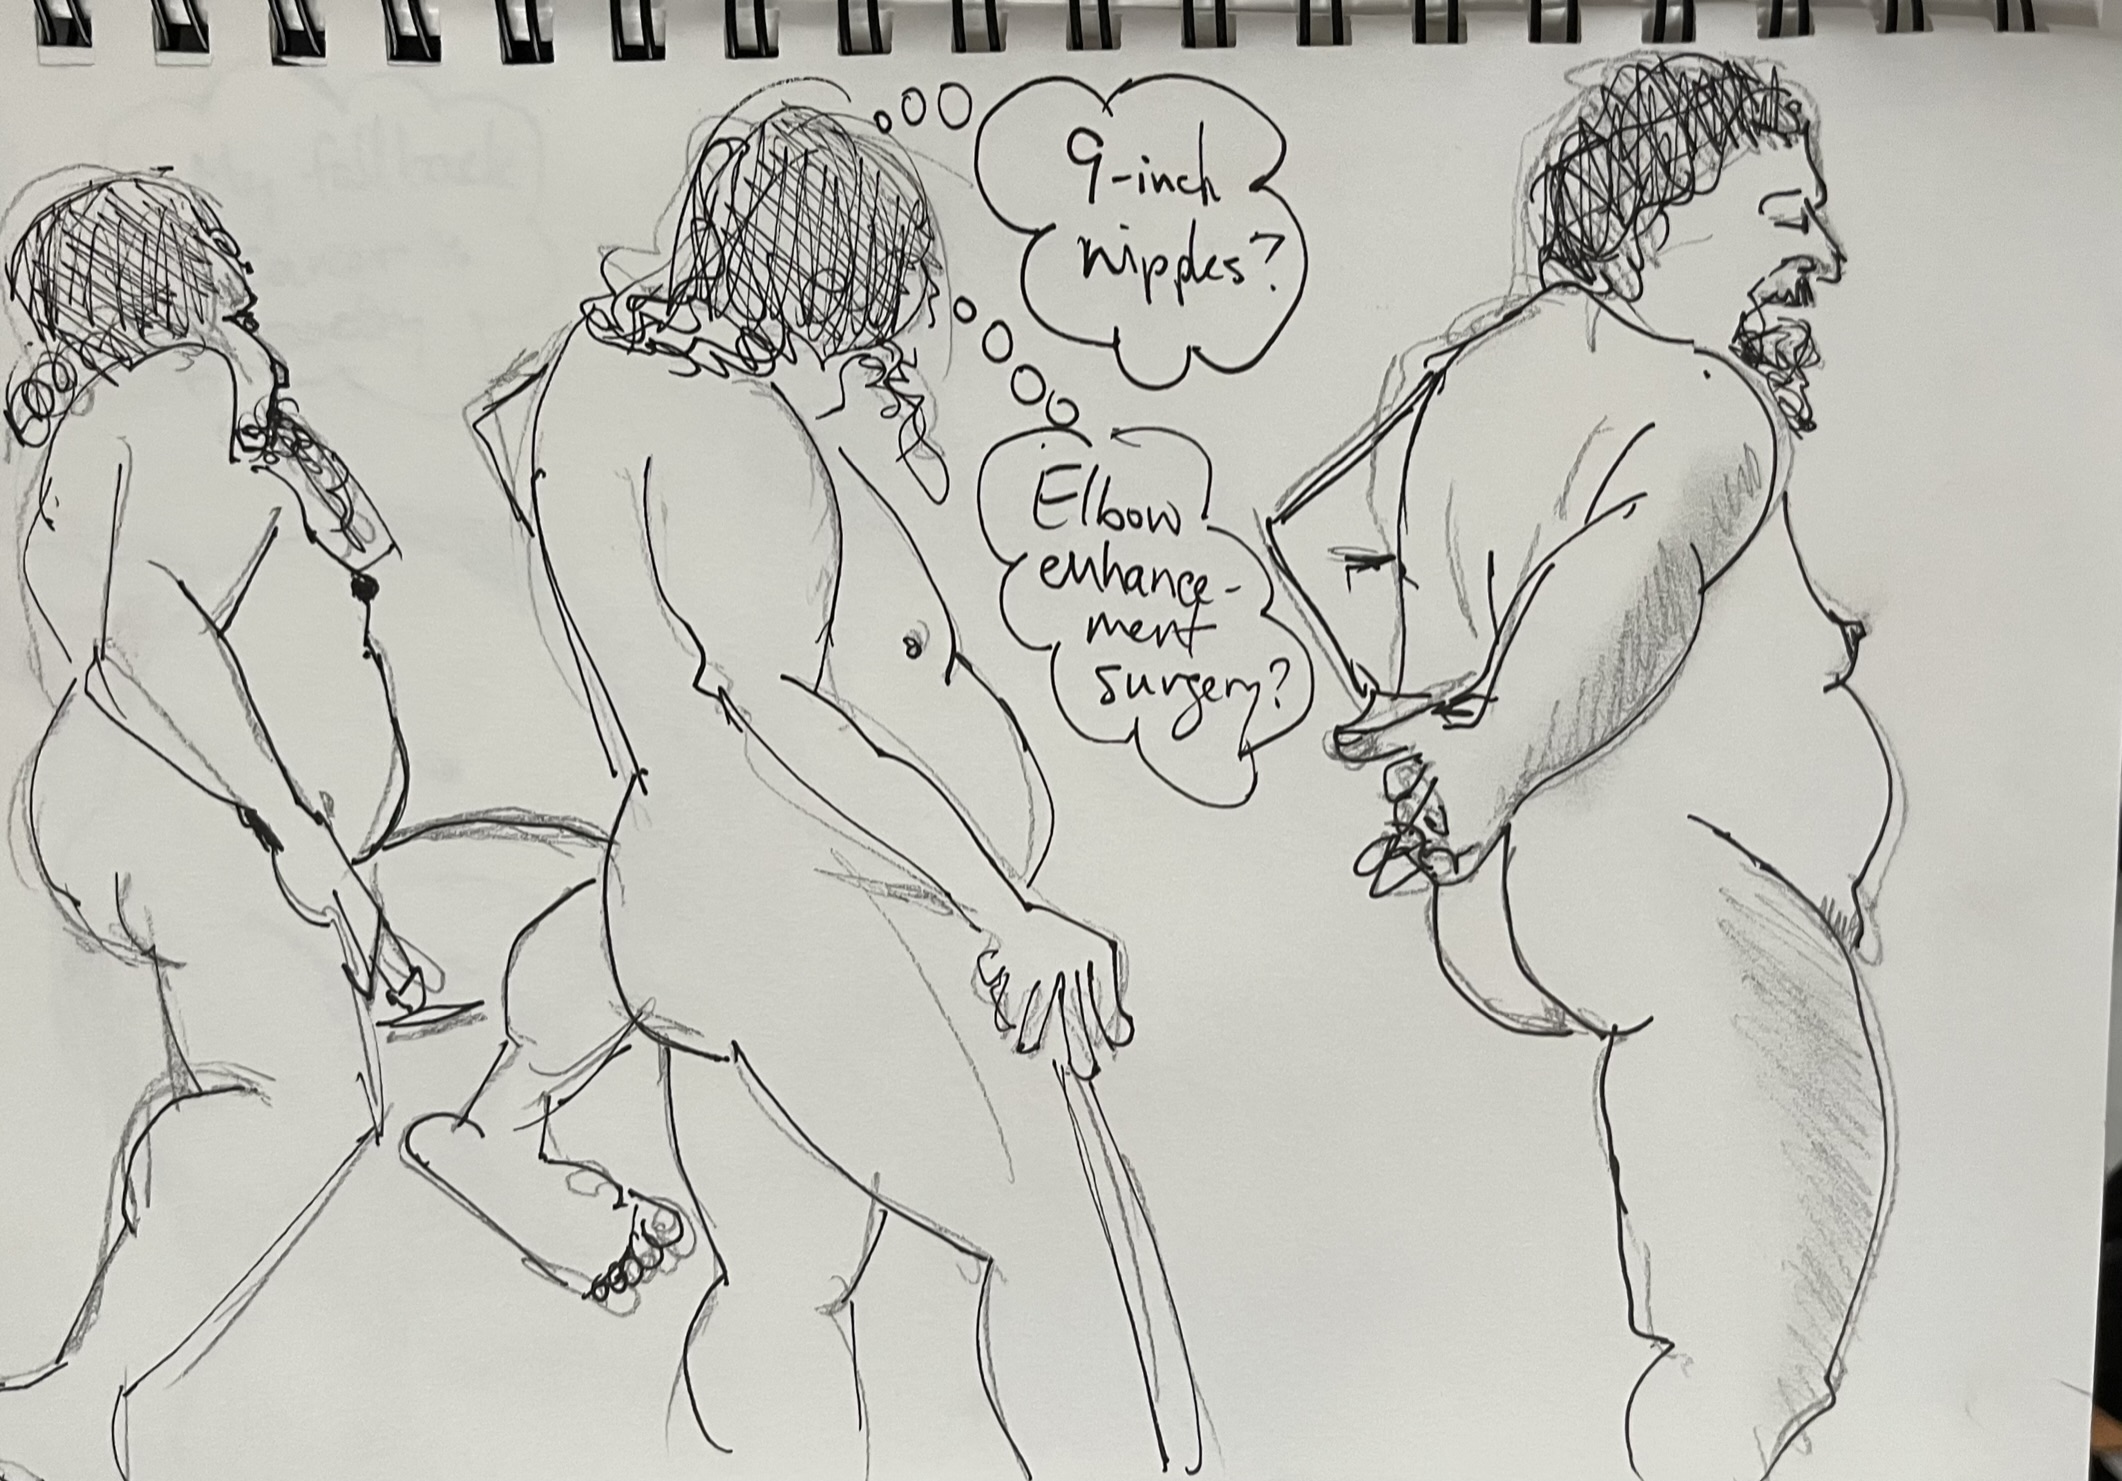 9-inch
nipples?
Elbow
enhance-
ment
surgery?